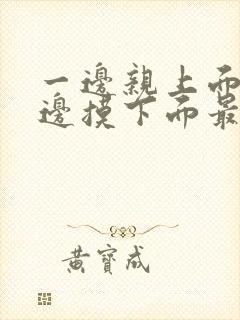 一邊親上面一
邊摸下面最
黃寶成